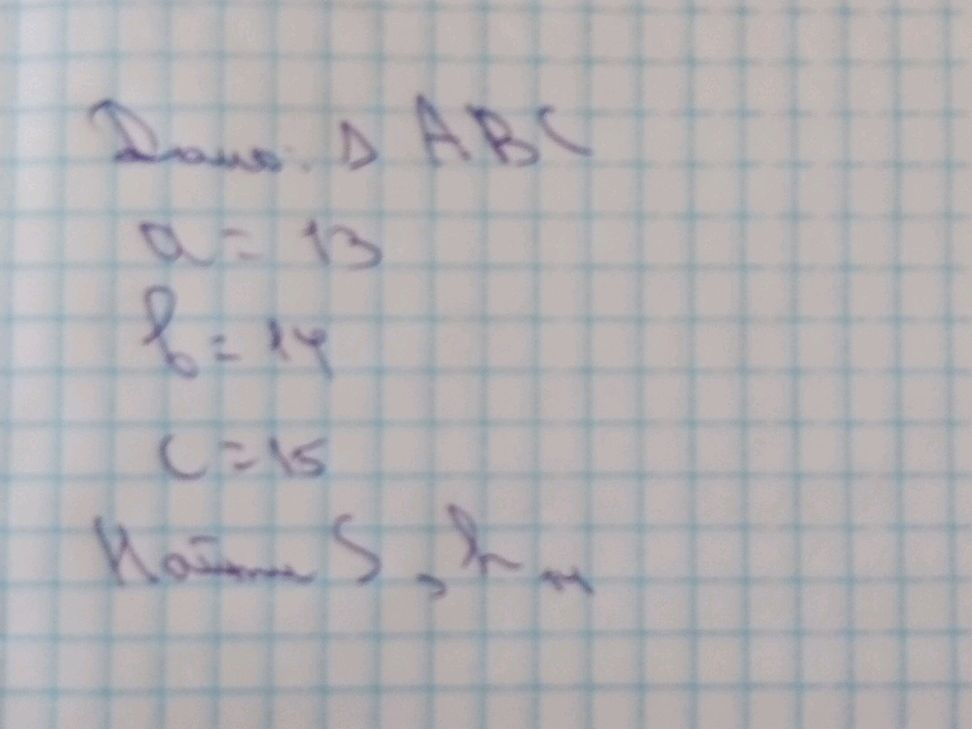 Дано: Δ ABC
a = 13
b = 14
c = 15
Найти S, h